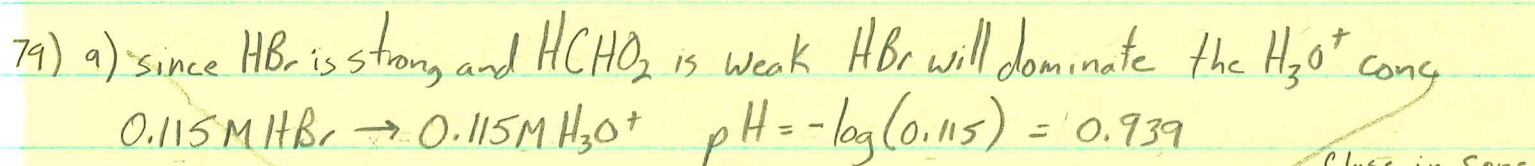 79) a) since HBr is strong and HCHO₂ is weak HBr will dominate the H₃O⁺ conc
0.115M HBr → 0.115M H₃O⁺ pH = -log(0.115) = 0.939